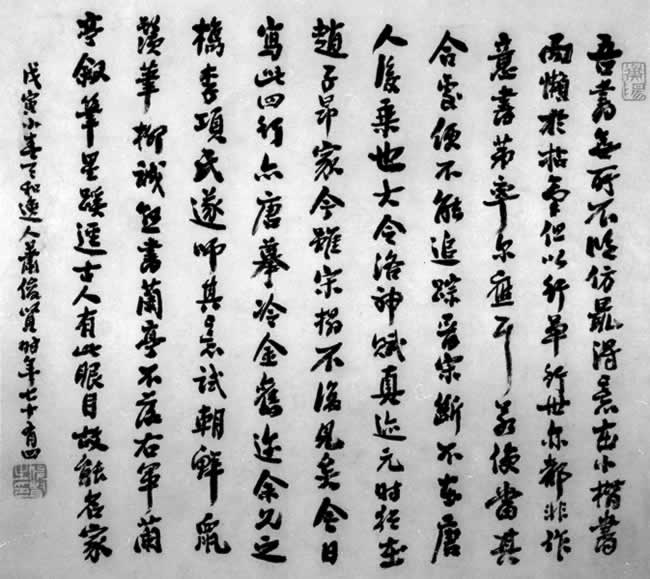 吾書無所不臨仿最得意在小楷書
而懶於拈筆但以行草行世亦都非作
意書第率尔應耳若使當其
合處便不能追踪晉宋斷不在唐
人後乘也大令洛神賦真迹元時猶在
趙子昂家今雖宋搨不復見矣今日
寫此四行亦唐摹冷金舊迹余見之
檇李項氏遂師其意試朝鮮鼠
鬚筆柳誠懸書蘭亭不落右軍蘭
亭叙筆墨蹊逕古人有此眼目故能名家
戊寅小春天和逸人蕭俊賢時年七十有四